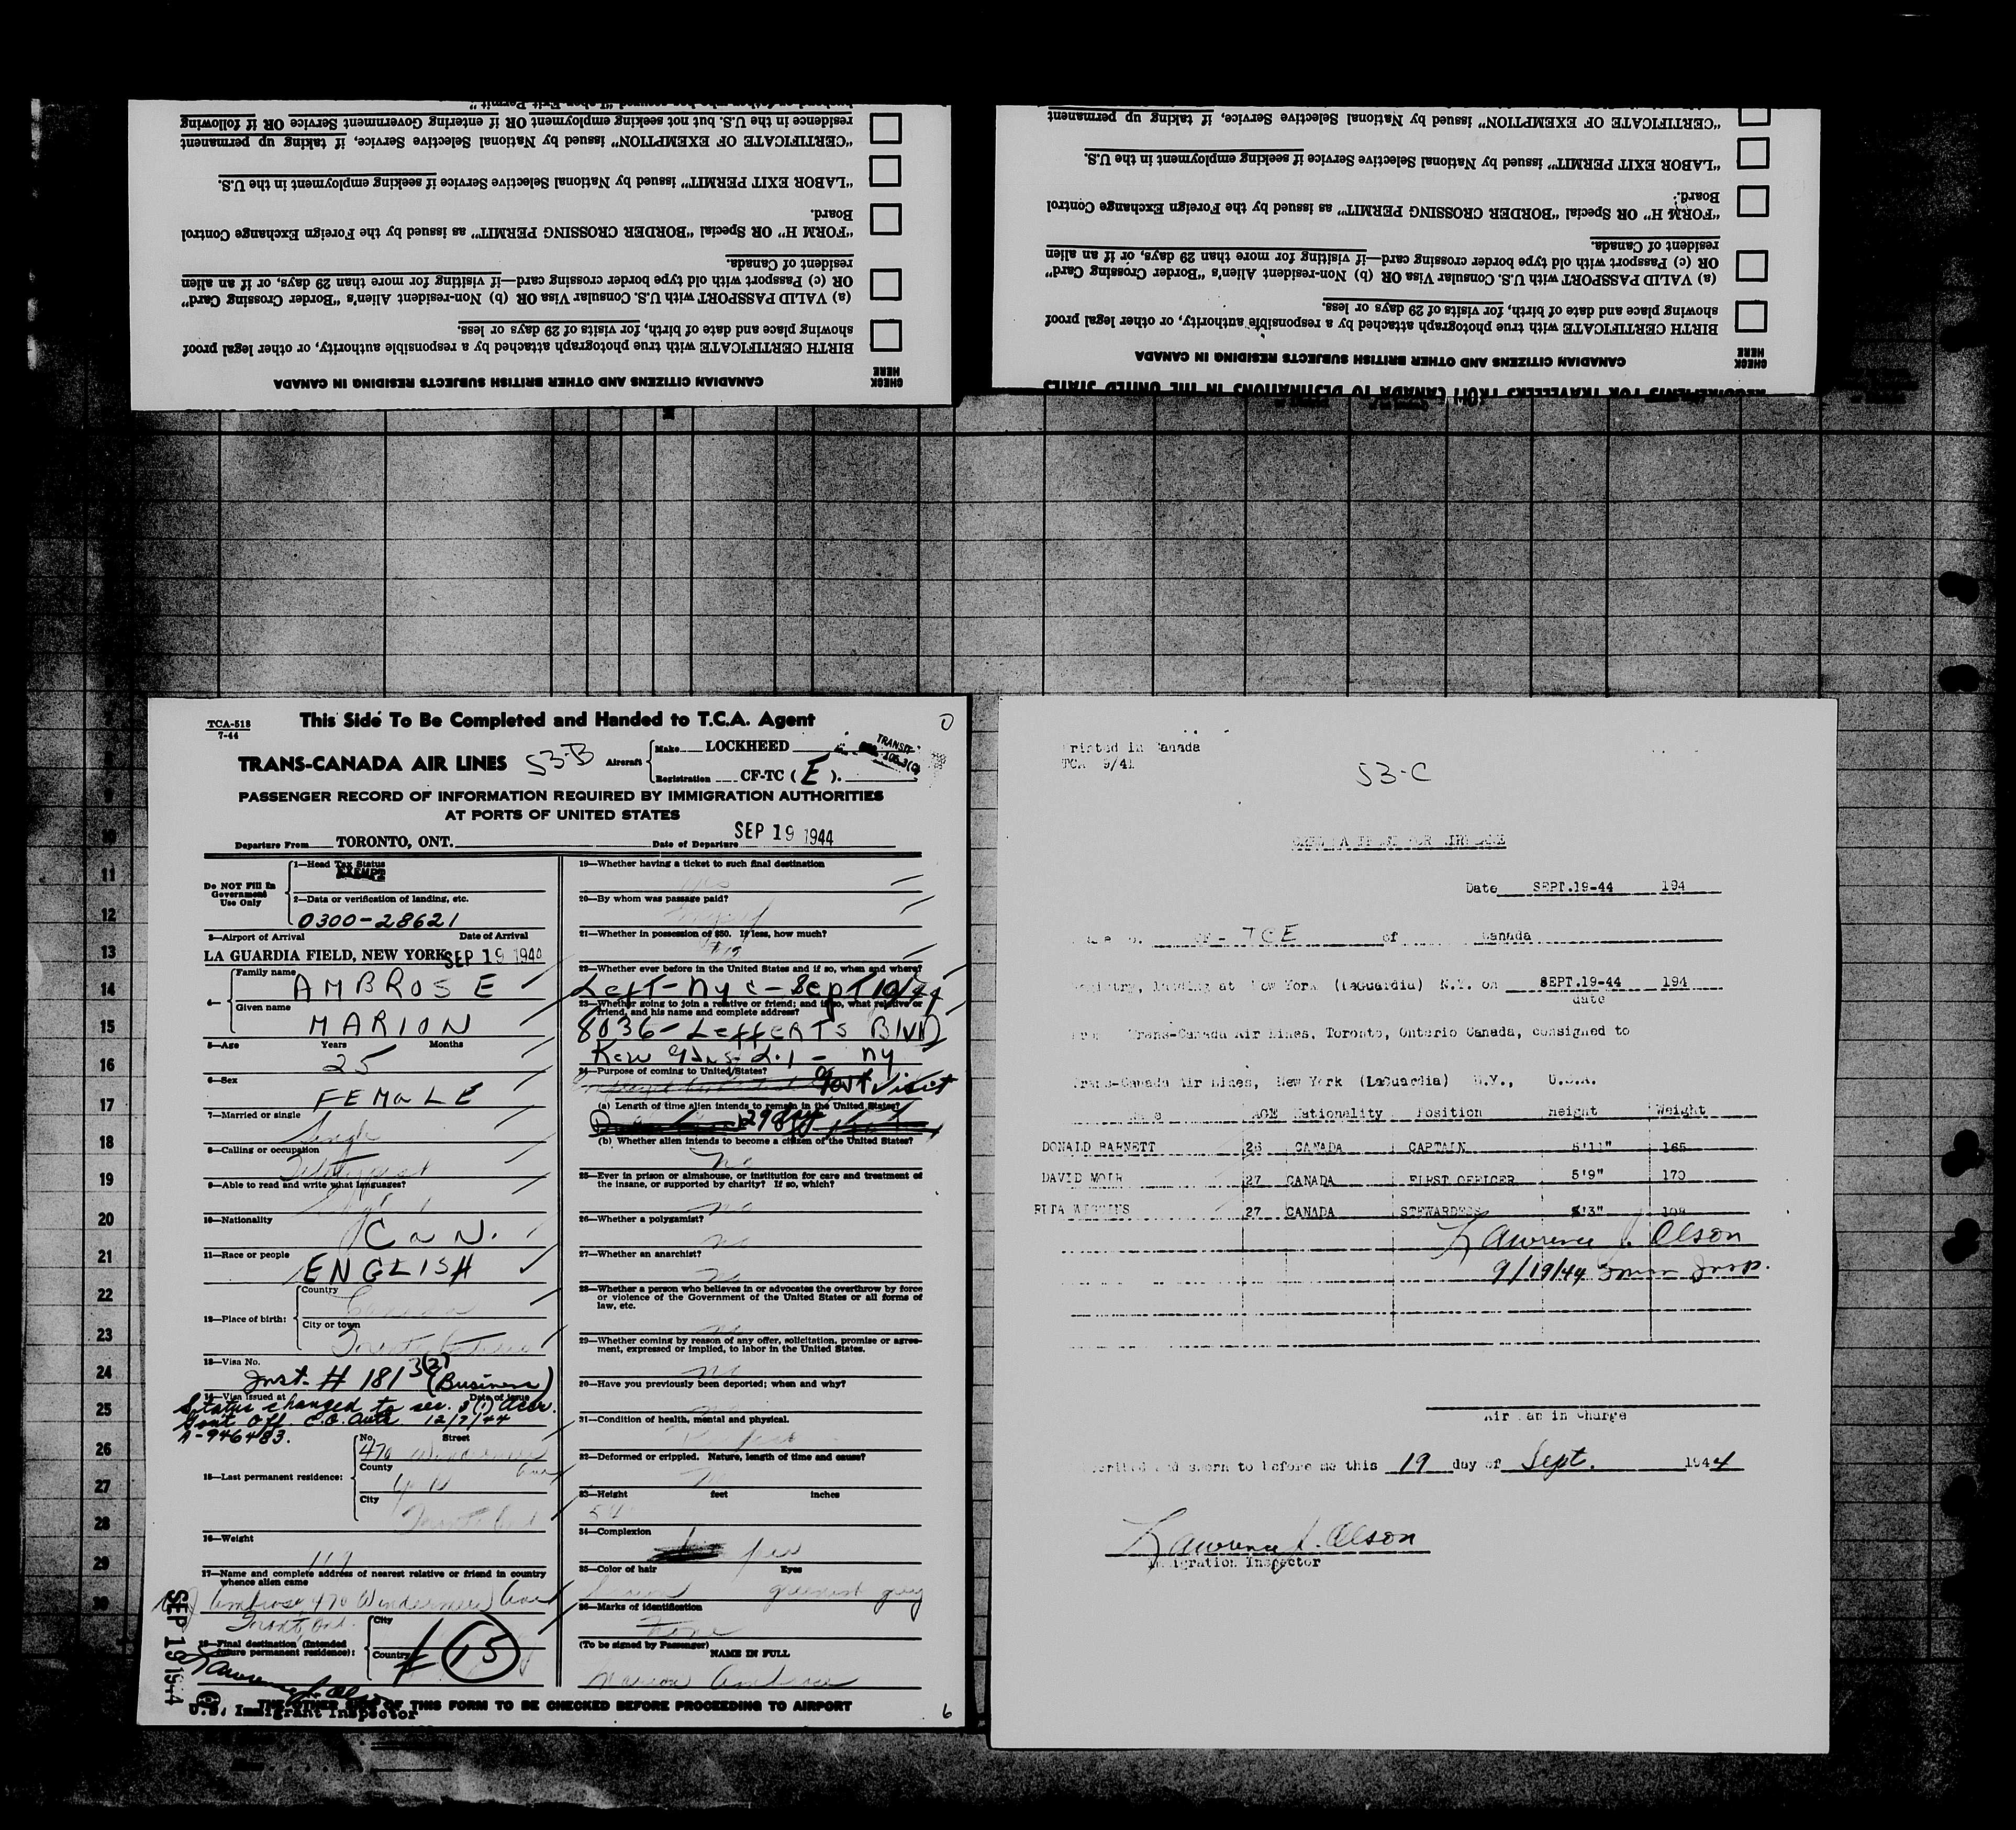 husband or father who has secured "Labor Exit Permit"
residence in the U.S. but not seeking employment OR if entering Government Service OR if following
"CERTIFICATE OF EXEMPTION" issued by National Selective Service, if taking up permanent
"LABOR EXIT PERMIT" issued by National Selective Service if seeking employment in the U.S.
Board.
"FORM H" OR Special "BORDER CROSSING PERMIT" as issued by the Foreign Exchange Control
resident of Canada.
OR (c) Passport with old type border crossing card—if visiting for more than 29 days, or if an alien
(a) VALID PASSPORT with U.S. Consular Visa OR (b) Non-resident Alien's "Border Crossing Card"
showing place and date of birth, for visits of 29 days or less.
BIRTH CERTIFICATE with true photograph attached by a responsible authority, or other legal proof
CANADIAN CITIZENS AND OTHER BRITISH SUBJECTS RESIDING IN CANADA
CHECK HERE
"CERTIFICATE OF EXEMPTION" issued by National Selective Service, if taking up permanent
"LABOR EXIT PERMIT" issued by National Selective Service if seeking employment in the U.S.
Board.
"FORM H" OR Special "BORDER CROSSING PERMIT" as issued by the Foreign Exchange Control
resident of Canada.
OR (c) Passport with old type border crossing card—if visiting for more than 29 days, or if an alien
(a) VALID PASSPORT with U.S. Consular Visa OR (b) Non-resident Alien's "Border Crossing Card"
showing place and date of birth, for visits of 29 days or less.
BIRTH CERTIFICATE with true photograph attached by a responsible authority, or other legal proof
CANADIAN CITIZENS AND OTHER BRITISH SUBJECTS RESIDING IN CANADA
CHECK HERE
REQUIREMENTS FOR TRAVELLERS FROM CANADA TO DESTINATIONS IN THE UNITED STATES
TCA-518
7-44
This Side To Be Completed and Handed to T.C.A. Agent
TRANS-CANADA AIR LINES 53-B
Aircraft
Make LOCKHEED
Registration CF-TC (E).
TRANSIT
PASSENGER RECORD OF INFORMATION REQUIRED BY IMMIGRATION AUTHORITIES
AT PORTS OF UNITED STATES
Departure From TORONTO, ONT. Date of Departure SEP 19 1944
Do NOT Fill In
Government
Use Only
1—Head Tax Status
EXEMPT
2—Data or verification of landing, etc.
0300-28621
3—Airport of Arrival Date of Arrival
LA GUARDIA FIELD, NEW YORK SEP 19 1944
4— Family name AMBROSE
Given name
MARION
5—Age Years Months
25
6—Sex
FEMALE
7—Married or single
Single
8—Calling or occupation
Teletypist
9—Able to read and write what languages?
English
10—Nationality
CAN.
11—Race or people
ENGLISH
12—Place of birth:
Country
Canada
City or town
13—Visa No.
Inst. # 181 3(2) (Business)
14—Visa issued at Date of issue
Status changed to sec. 3(1) Accr.
Govt Off C.O. Auth 12/7/44
A-946483.
15—Last permanent residence:
No. Street
470 Windermere Ave
County
York
City
Toronto Ont
16—Weight
119
17—Name and complete address of nearest relative or friend in country
whence alien came
Ambrose, 470 Windermere Ave
Toronto, Ont.
18—Final destination (Intended
future permanent residence):
City
Country
15
SEP 19 1944
Lawrence J. Olson
U.S. Immigrant Inspector
19—Whether having a ticket to such final destination
Yes
20—By whom was passage paid?
Myself
21—Whether in possession of $50. If less, how much?
22—Whether ever before in the United States and if so, when and where?
Left-NYC-Sept 19/44
23—Whether going to join a relative or friend; and if so, what relative or
friend, and his name and complete address?
8036-Lefferts BLVD
Kew Gdns-L.I-NY
24—Purpose of coming to United States?
Visit
(a) Length of time alien intends to remain in the United States?
29 days
(b) Whether alien intends to become a citizen of the United States?
No
25—Ever in prison or almshouse, or institution for care and treatment of
the insane, or supported by charity? If so, which?
No
26—Whether a polygamist?
No
27—Whether an anarchist?
No
28—Whether a person who believes in or advocates the overthrow by force
or violence of the Government of the United States or all forms of
law, etc.
No
29—Whether coming by reason of any offer, solicitation, promise or agree-
ment, expressed or implied, to labor in the United States.
No
30—Have you previously been deported; when and why?
No
31—Condition of health, mental and physical.
Perfect
32—Deformed or crippled. Nature, length of time and cause?
No
33—Height feet inches
34—Complexion
fair
35—Color of hair Eyes
Brown greenish grey
36—Marks of identification
None
(To be signed by Passenger)
NAME IN FULL
Marion Ambrose
THE OTHER SIDE OF THIS FORM TO BE CHECKED BEFORE PROCEEDING TO AIRPORT
6
Printed in Canada
TCA 9/41
53-C
Date SEPT.19-44 194
CF- TCE of Canada
Registry, landing at New York (LaGuardia) N.Y. on SEPT.19-44 194
date
From Trans-Canada Air Lines, Toronto, Ontario Canada, consigned to
Trans-Canada Air Lines, New York (LaGuardia) N.Y., U.S.A.
Name AGE Nationality Position Height Weight
DONALD BARNETT 26 CANADA CAPTAIN 5'11" 165
DAVID MOIR 27 CANADA FIRST OFFICER 5'9" 170
RITA WIGGINS 27 CANADA STEWARDESS 5'3" 109
Lawrence J. Olson
9/19/44 Immn Insp.
Air Man in Charge
Subscribed and sworn to before me this 19 day of Sept. 1944
Lawrence J. Olson
Immigration Inspector
10
11
12
13
14
15
16
17
18
19
20
21
22
23
24
25
26
27
28
29
30